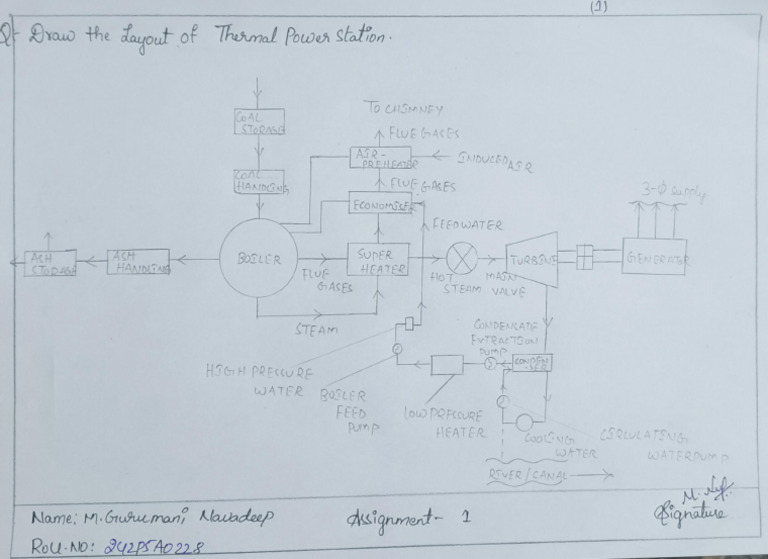 (1)
Q- Draw the Layout of Thermal Power Station.
TO CHIMNEY
FLUE GACES
COAL
STORAGE
AIR-
PREHEATER
INDUCED AIR
FLUE GASES
COAL
HANDING
ECONOMISER
3-Φ supply
FEEDWATER
ACH
STORAGE
ACH
HANDLING
BOILER
SUPER
HEATER
TURBINE
GENERATOR
FLUE
GASES
HOT
STEAM
MAIN
VALVE
STEAM
CONDENCATE
EXTRACTION
PUMP
CONDEN
SER
HIGH PRESSURE
WATER
BOILER
FEED
PUMP
LOW PRESSURE
HEATER
COOLING
WATER
CIRCULATING
WATERPUMP
RIVER/CANAL
Name: M.Gurumani Navadeep
Assignment- 1
Signature
Roll.NO: 242P5A0228